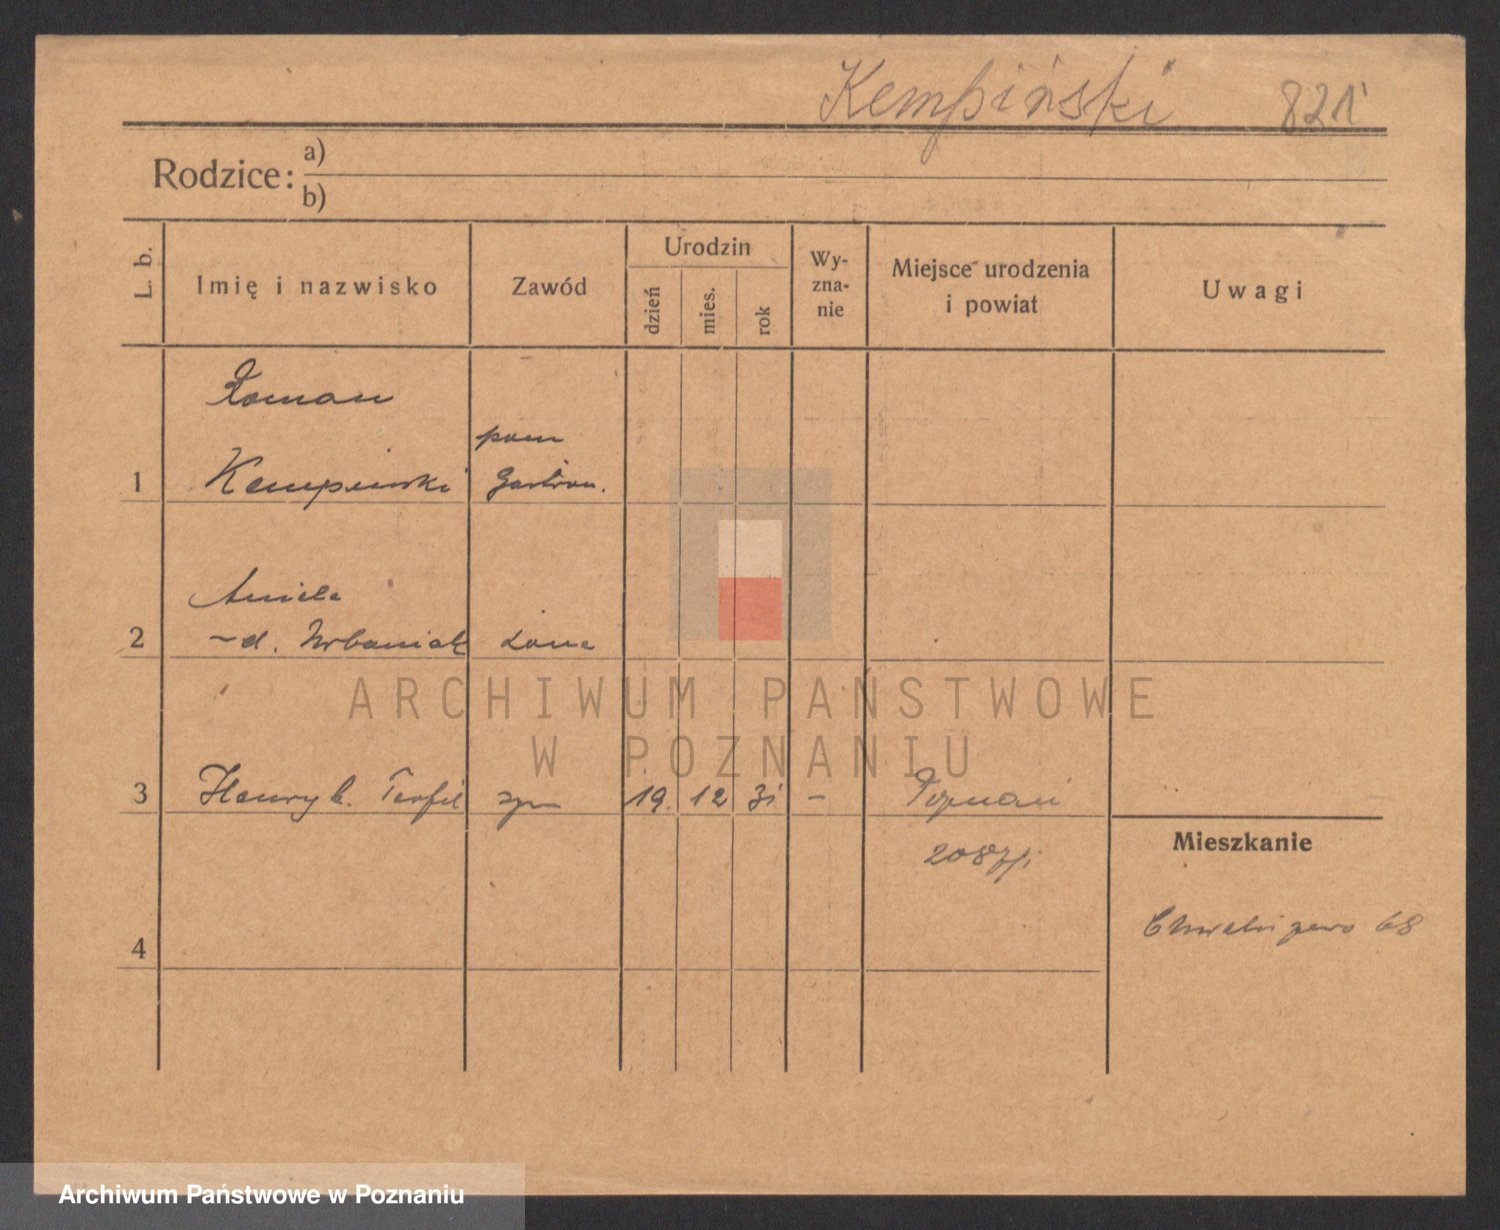 Kempiński 821
Rodzice: a)
b)
L. b.
Imię i nazwisko
Zawód
Urodzin
dzień
mies.
rok
Wy-
zna-
nie
Miejsce urodzenia
i powiat
Uwagi
Roman
pom
1 Kempiński Gastron.
Aniela
2 -d. Urbaniak żona
3 Henryk Teofil syn 19. 12 31 - Poznań
Mieszkanie
Chwaliszewo 68
4
ARCHIWUM PAŃSTWOWE
W POZNANIU
Archiwum Państwowe w Poznaniu